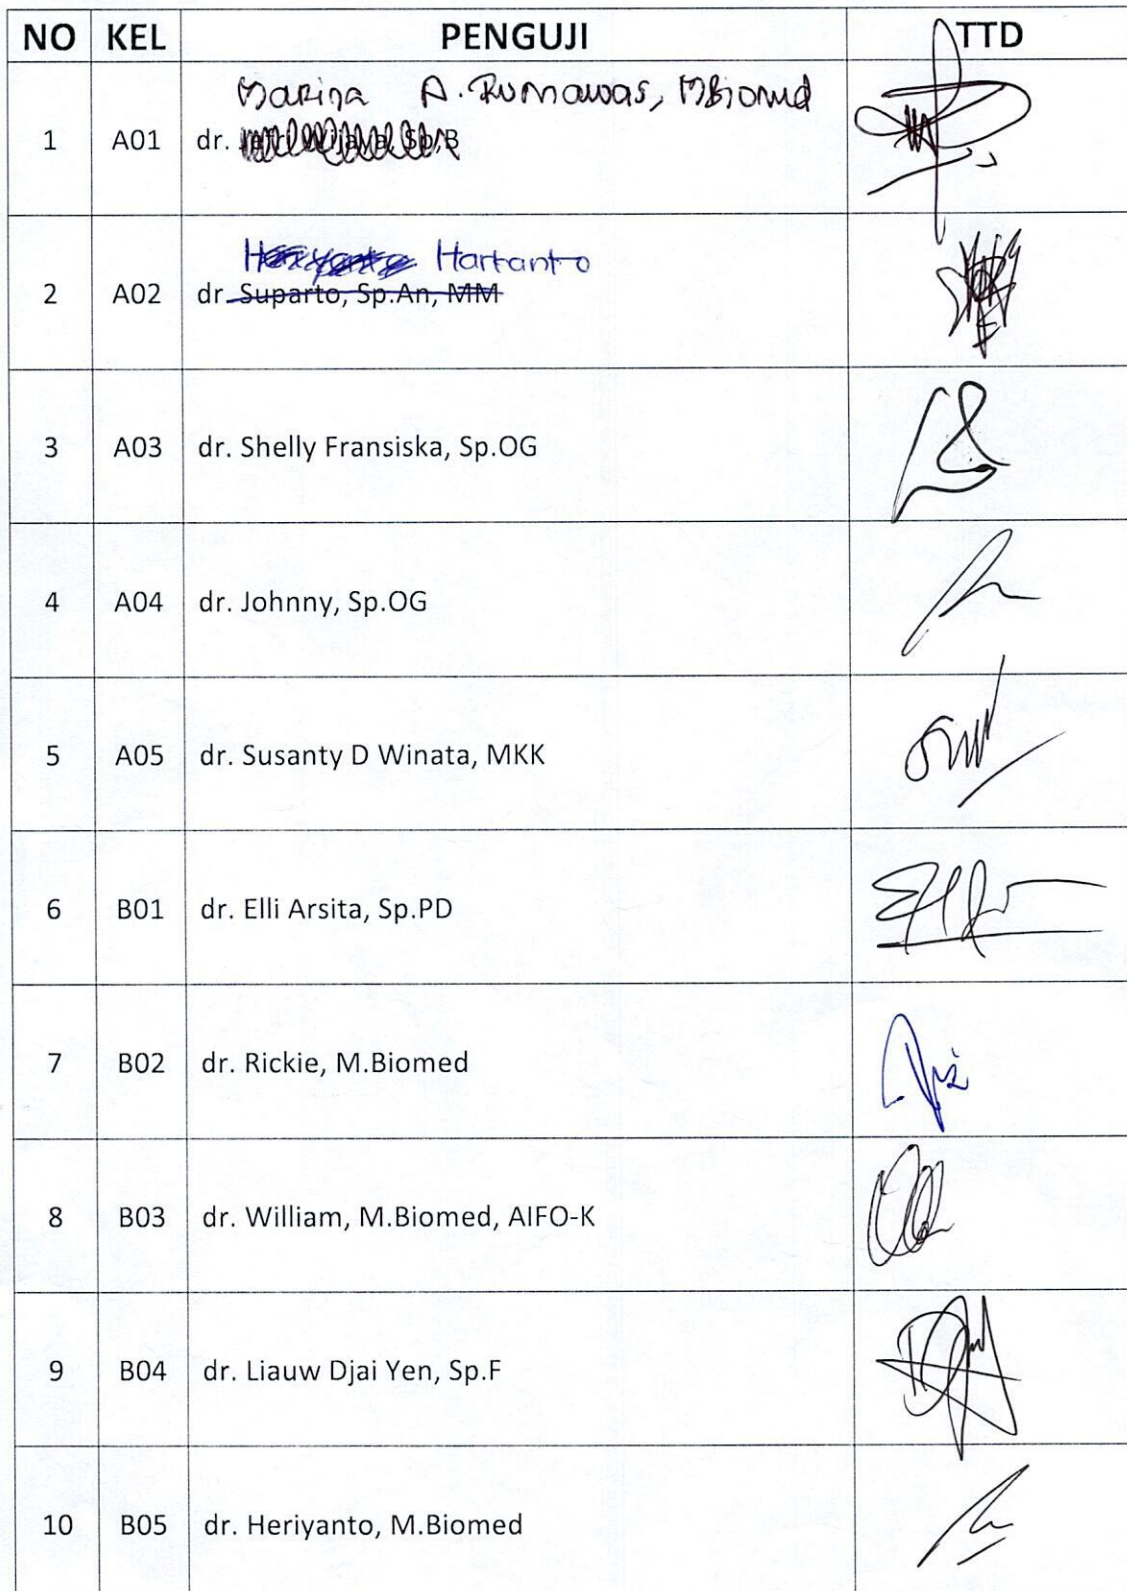 NO KEL PENGUJI TTD
Marina A. Rumawas, MBiomed
1 A01 dr.
Hartanto
2 A02 dr. Suparto, Sp.An, MM
3 A03 dr. Shelly Fransiska, Sp.OG
4 A04 dr. Johnny, Sp.OG
5 A05 dr. Susanty D Winata, MKK
6 B01 dr. Elli Arsita, Sp.PD
7 B02 dr. Rickie, M.Biomed
8 B03 dr. William, M.Biomed, AIFO-K
9 B04 dr. Liauw Djai Yen, Sp.F
10 B05 dr. Heriyanto, M.Biomed